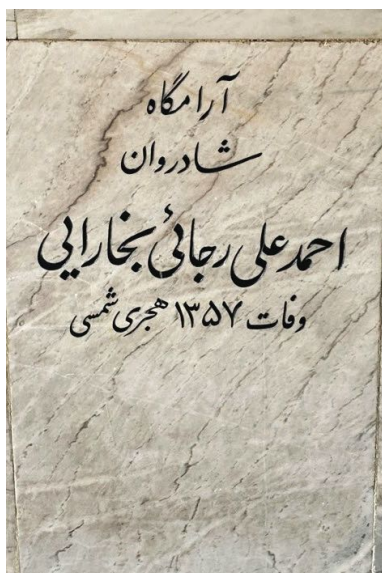 آرامگاه
شادروان
احمد علی رجائی بخارایی
وفات ۱۳۵۷ هجری شمسی